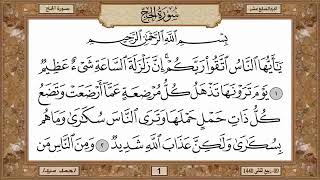 الجزء السابع عشر
سورة الحج
سُورَةُ الحَجِّ
بِسْمِ اللَّهِ الرَّحْمَٰنِ الرَّحِيمِ
يَٰٓأَيُّهَا ٱلنَّاسُ ٱتَّقُوا۟ رَبَّكُمْ ۚ إِنَّ زَلْزَلَةَ ٱلسَّاعَةِ شَىْءٌ عَظِيمٌ
١ يَوْمَ تَرَوْنَهَا تَذْهَلُ كُلُّ مُرْضِعَةٍ عَمَّآ أَرْضَعَتْ وَتَضَعُ
كُلُّ ذَاتِ حَمْلٍ حَمْلَهَا وَتَرَى ٱلنَّاسَ سُكَٰرَىٰ وَمَا هُم
بِسُكَٰرَىٰ وَلَٰكِنَّ عَذَابَ ٱللَّهِ شَدِيدٌ ٢ وَمِنَ ٱلنَّاسِ مَن
1